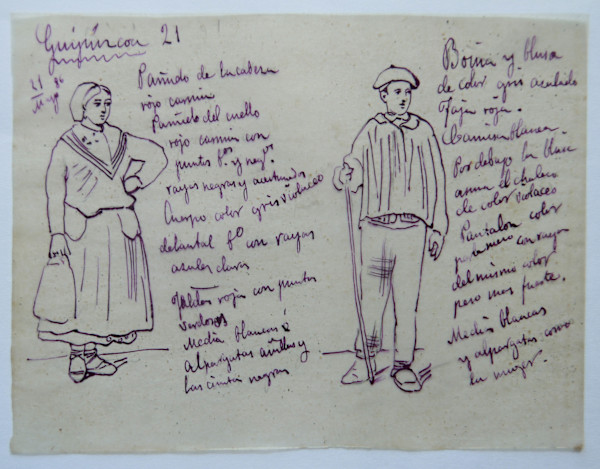 Guipúzcoa 21
21
Mayo 86
Pañuelo de la cabeza
rojo carmin
Pañuelo del cuello
rojo carmin con
puntos b.os y neg.s
rayas negras y
Cuerpo color gris violaceo
delantal b.o con rayas
azules claras
rojas con puntos
Media blancas é
alpargatas y
las cintas negras
Boina y blusa
de color gris azulado
Faja roja.
Camisa blanca.
Por debajo la blusa
asoma el chaleco
de color violaceo
Pantalon color
con rayas
del mismo color
pero mas fuerte.
Medias blancas
y alpargatas como
la mujer.